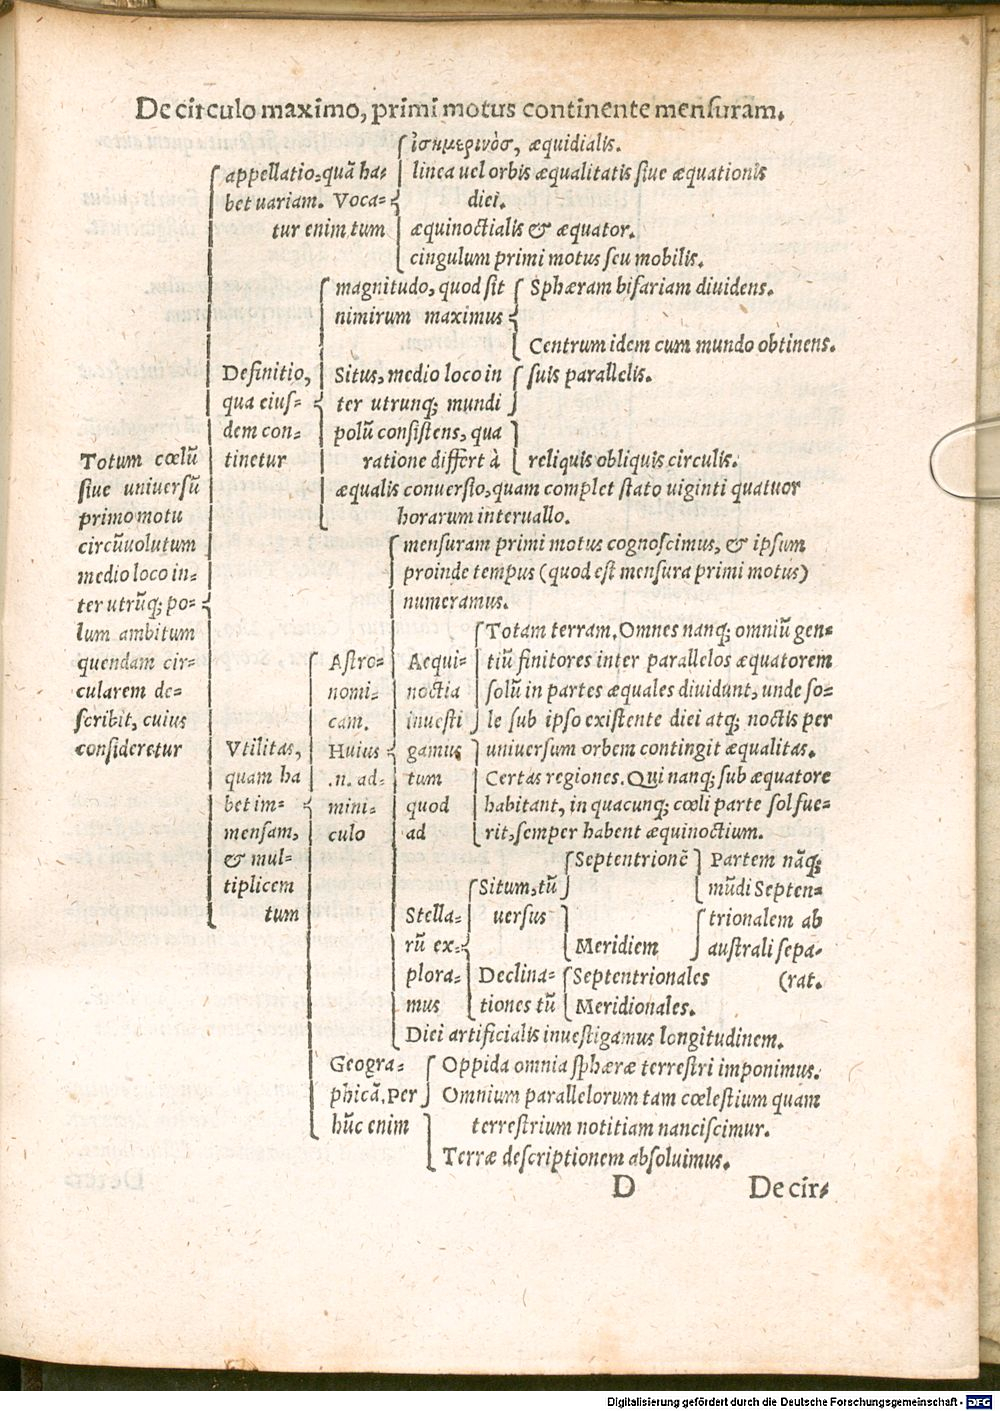 De circulo maximo, primi motus continente mensuram.
Totum cœlũ
siue uniuersũ
primo motu
circũuolutum
medio loco in-
ter utrũq; po-
lum ambitum
quendam cir-
cularem de-
scribit, cuius
consideretur
appellatio, quã ha-
bet uariam. Voca-
tur enim tum
ἰσημερινὸσ, æquidialis.
linea uel orbis æqualitatis siue æquationis
diei.
æquinoctialis & æquator.
cingulum primi motus seu mobilis.
Definitio,
qua eius-
dem con-
tinetur
magnitudo, quod sit
nimirum maximus
Sphæram bifariam diuidens.
Centrum idem cum mundo obtinens.
Situs, medio loco in
ter utrunq; mundi
polũ consistens, qua
ratione differt à
suis parallelis.
reliquis obliquis circulis.
æqualis conuersio, quam complet stato uiginti quatuor
horarum interuallo.
Vtilitas,
quam ha
bet im-
mensam,
& mul-
tiplicem
tum
Astro-
nomi-
cam.
Huius
.n. ad-
mini-
culo
mensuram primi motus cognoscimus, & ipsum
proinde tempus (quod est mensura primi motus)
numeramus.
Aequi-
noctia
inuesti
gamus
tum
quod
ad
Totam terram. Omnes nanq; omniũ gen-
tiũ finitores inter parallelos æquatorem
solũ in partes æquales diuidunt, unde so-
le sub ipso existente diei atq; noctis per
uniuersum orbem contingit æqualitas.
Certas regiones. Qui nanq; sub æquatore
habitant, in quacunq; cœli parte sol fue-
rit, semper habent æquinoctium.
Stella-
rũ ex-
plora-
mus
Situm, tũ
uersus
Septentrionẽ
Meridiem
Partem nãq;
mũdi Septen-
trionalem ab
australi sepa-
(rat.
Declina-
tiones tũ
Septentrionales
Meridionales.
Diei artificialis inuestigamus longitudinem.
Geogra-
phicã. Per
hũc enim
Oppida omnia sphæræ terrestri imponimus.
Omnium parallelorum tam cœlestium quam
terrestrium notitiam nanciscimur.
Terræ descriptionem absoluimus.
D
De cir-
Digitalisierung gefördert durch die Deutsche Forschungsgemeinschaft - DFG